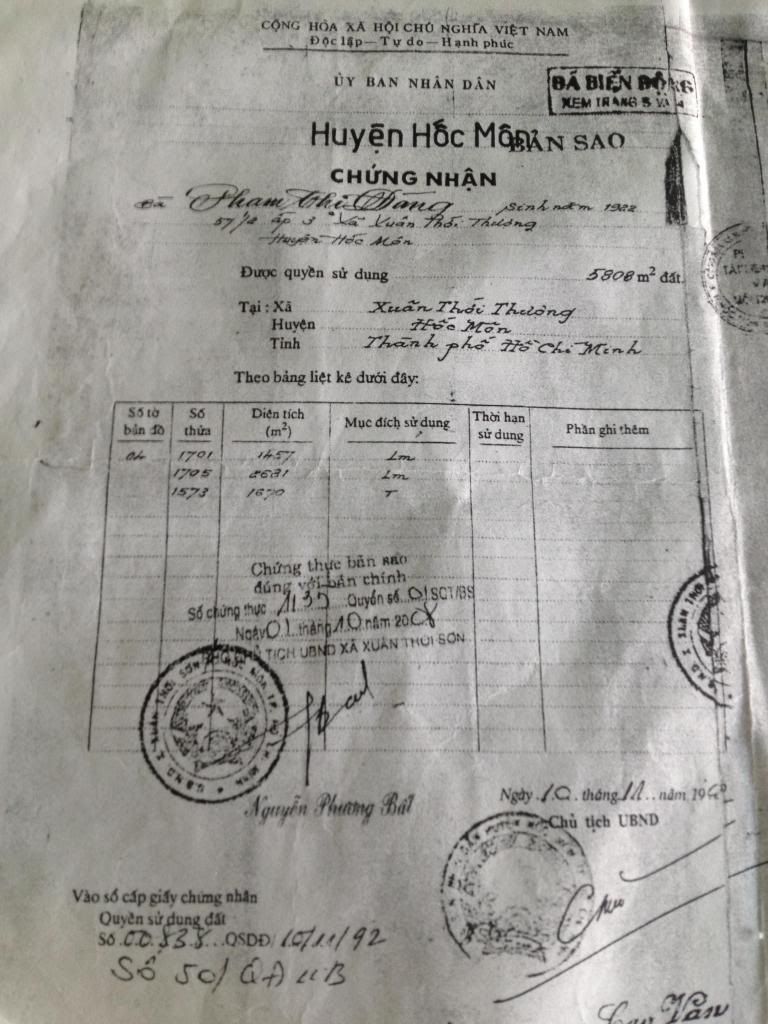 CỘNG HÒA XÃ HỘI CHỦ NGHĨA VIỆT NAM
Độc lập — Tự do — Hạnh phúc
ỦY BAN NHÂN DÂN
ĐÃ BIẾN ĐỘNG
XEM TRANG 3 VÀ 4
Huyện Hốc Môn
BẢN SAO
CHỨNG NHẬN
Bà Phạm Thị Dặng sinh năm 1922
57/2 ấp 3 Xã Xuân Thới Thượng
Huyện Hốc Môn
Được quyền sử dụng 5808 m² đất.
Tại : Xã Xuân Thới Thượng
Huyện Hốc Môn
Tỉnh Thành phố Hồ Chí Minh
Theo bảng liệt kê dưới đây:
Số tờ bản đồ Số thửa Diện tích (m²) Mục đích sử dụng Thời hạn sử dụng Phần ghi thêm
1701 1457 Lm
1705 2681 Lm
1573 1670 T
Chứng thực bản sao
đúng với bản chính
Số chứng thực 1135 Quyển số 01 SCT/BS
Ngày 01 tháng 10 năm 2008
TỊCH UBND XÃ XUÂN THỚI SƠN
Nguyễn Phương Bắl
Ngày 10 tháng 11 năm 19
Chủ tịch UBND
Vào sổ cấp giấy chứng nhận
Quyền sử dụng đất
Số 00838 QSDĐ/ 10/11/92
Số 50/QĐ UB